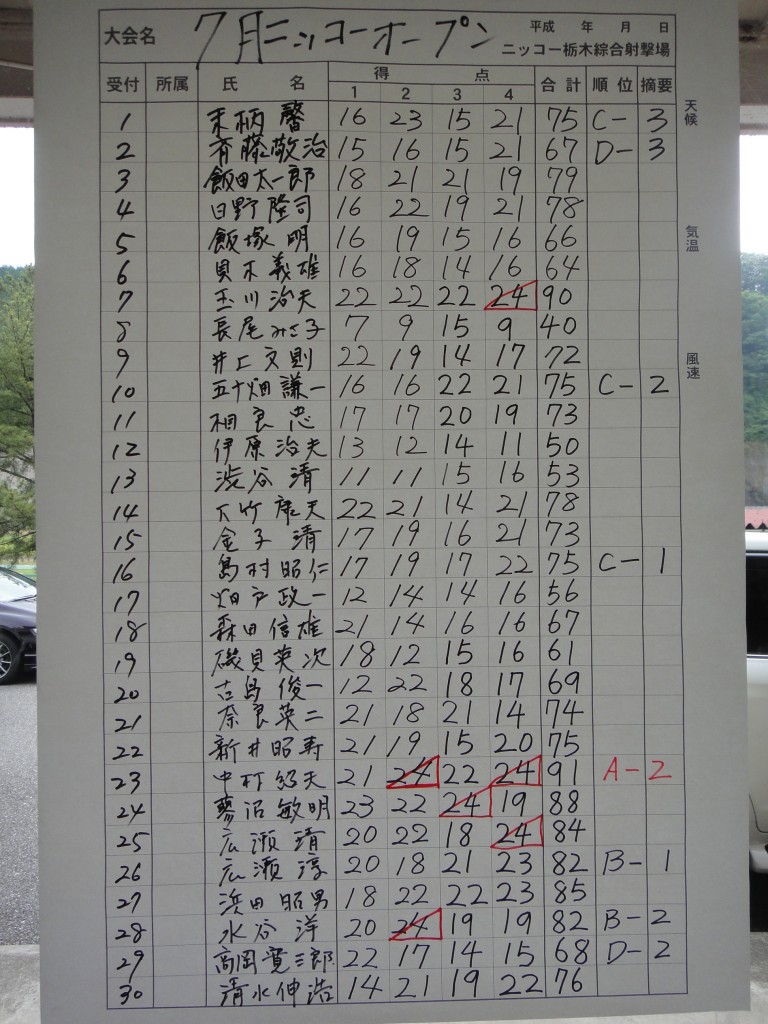 大会名 7月ニッコーオープン 平成 年 月 日
ニッコー栃木綜合射撃場
受付 所属 氏 名 得 点 合計 順位 摘要
1 2 3 4
天候
気温
風速
1 末柄 馨 16 23 15 21 75 C- 3
2 斉藤敬治 15 16 15 21 67 D- 3
3 飯田太一郎 18 21 21 19 79
4 日野隆司 16 22 19 21 78
5 飯塚 明 16 19 15 16 66
6 貝木義雄 16 18 14 16 64
7 玉川治夫 22 22 22 24 90
8 長尾みさ子 7 9 15 9 40
9 井上文則 22 19 14 17 72
10 五十畑謙一 16 16 22 21 75 C- 2
11 相良 忠 17 17 20 19 73
12 伊原治夫 13 12 14 11 50
13 渋谷 清 11 11 15 16 53
14 大竹康夫 22 21 14 21 78
15 金子 清 17 19 16 21 73
16 島村昭仁 17 19 17 22 75 C- 1
17 畑戸政一 12 14 14 16 56
18 森田信雄 21 14 16 16 67
19 磯貝英次 18 12 15 16 61
20 古島俊一 12 22 18 17 69
21 奈良英二 21 18 21 14 74
22 新井昭寿 21 19 15 20 75
23 中村紹夫 21 24 22 24 91 A- 2
24 蓼沼敏明 23 22 24 19 88
25 広瀬 清 20 22 18 24 84
26 広瀬 淳 20 18 21 23 82 B- 1
27 浜田昭男 18 22 22 23 85
28 水谷 洋 20 24 19 19 82 B- 2
29 高岡寛三郎 22 17 14 15 68 D- 2
30 清水伸浩 14 21 19 22 76